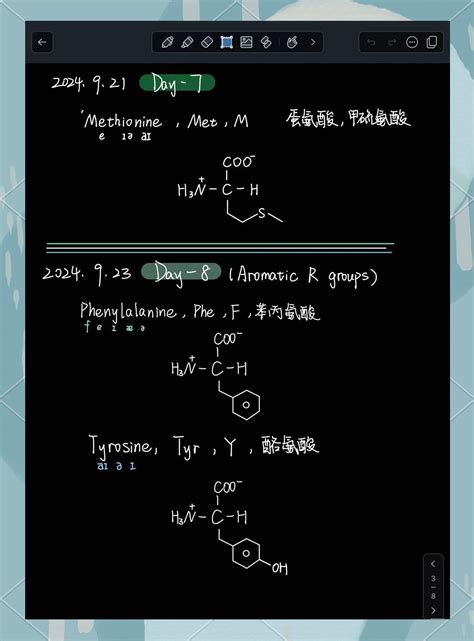 2024. 9. 21 Day-7
Methionine, Met, M 蛋氨酸, 甲硫氨酸
e ɪə aɪ
COO⁻
H₃N⁺-C-H
S
2024. 9. 23 Day-8 (Aromatic R groups)
Phenylalanine, Phe, F, 苯丙氨酸
COO⁻
H₃N⁺-C-H
Tyrosine, Tyr, Y, 酪氨酸
aɪ ə ɪ
COO⁻
H₃N⁺-C-H
OH
3
8